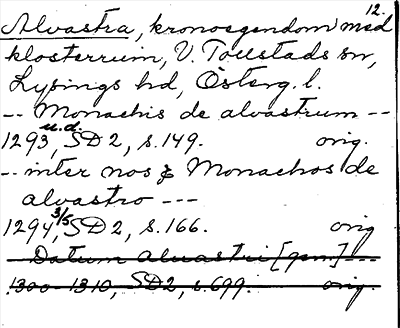 12.
Alvastra, kronoegendom med
klosterruin, V. Tollstads sn,
Lysings hd, Österg. l.
-- Monachis de alvastrum --
u.d.
1293, SD 2, s. 149. orig.
-- inter nos & Monachos de
alvastro ---
1294 3/5, SD 2, s. 166. orig
Datum Aluastri [gen.] ---
1300-1310, SD2, s. 699. orig.